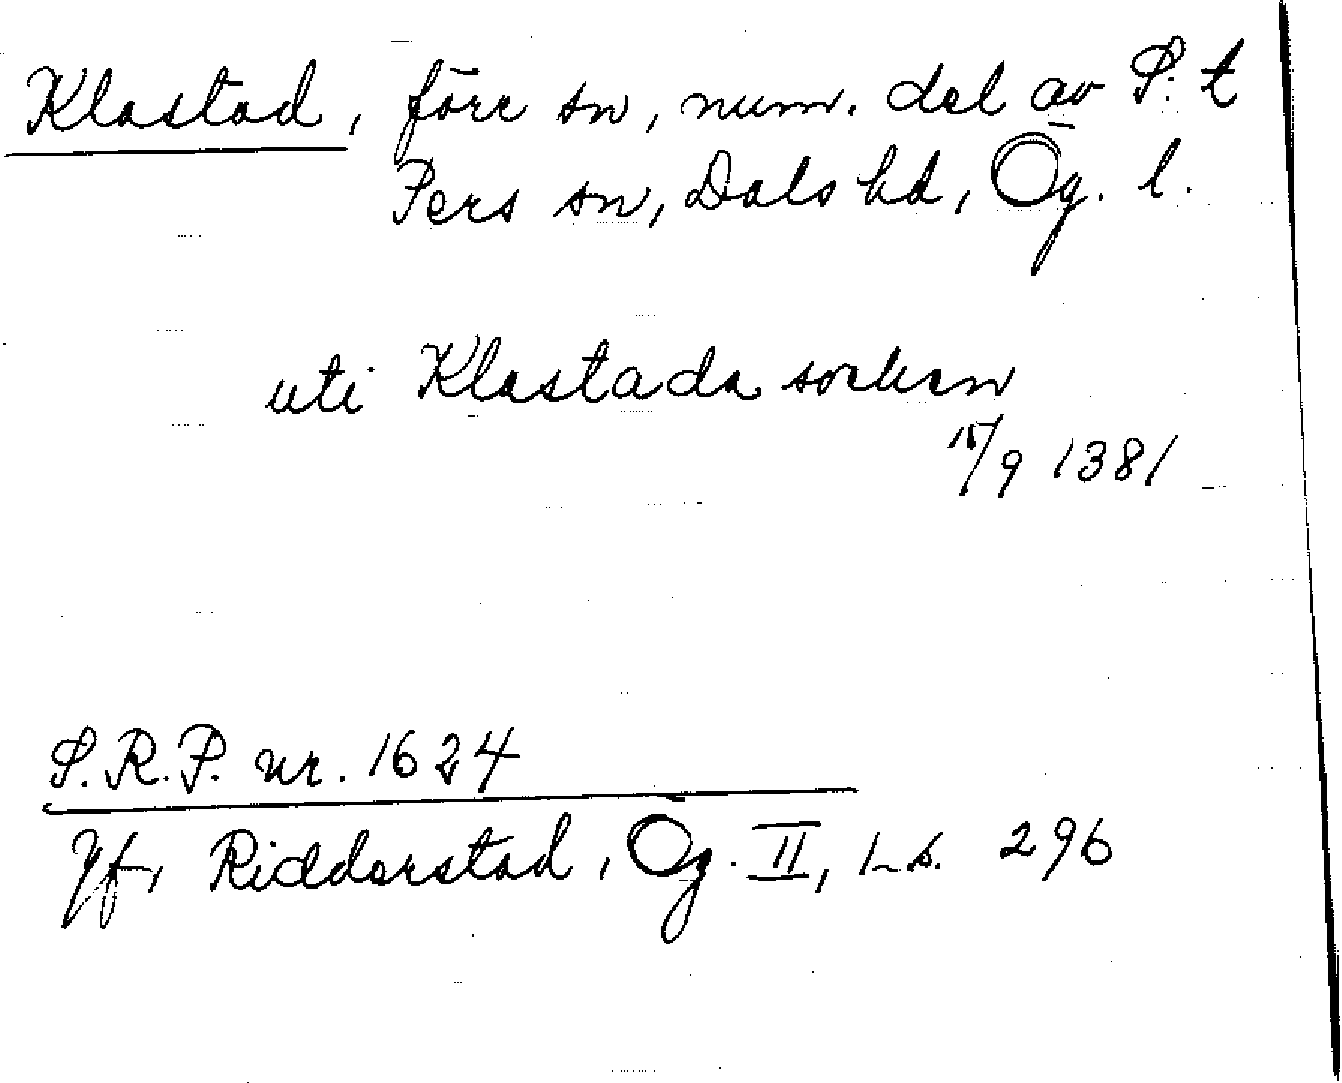 Klastad, förr sn, num. del av S:t
Pers sn, Dals hd, Ög. l.
uti Klastada sorken
15/9 1381
S.R.P. nr. 1624
Jfr Ridderstad, Ög. II, 1 s. 296